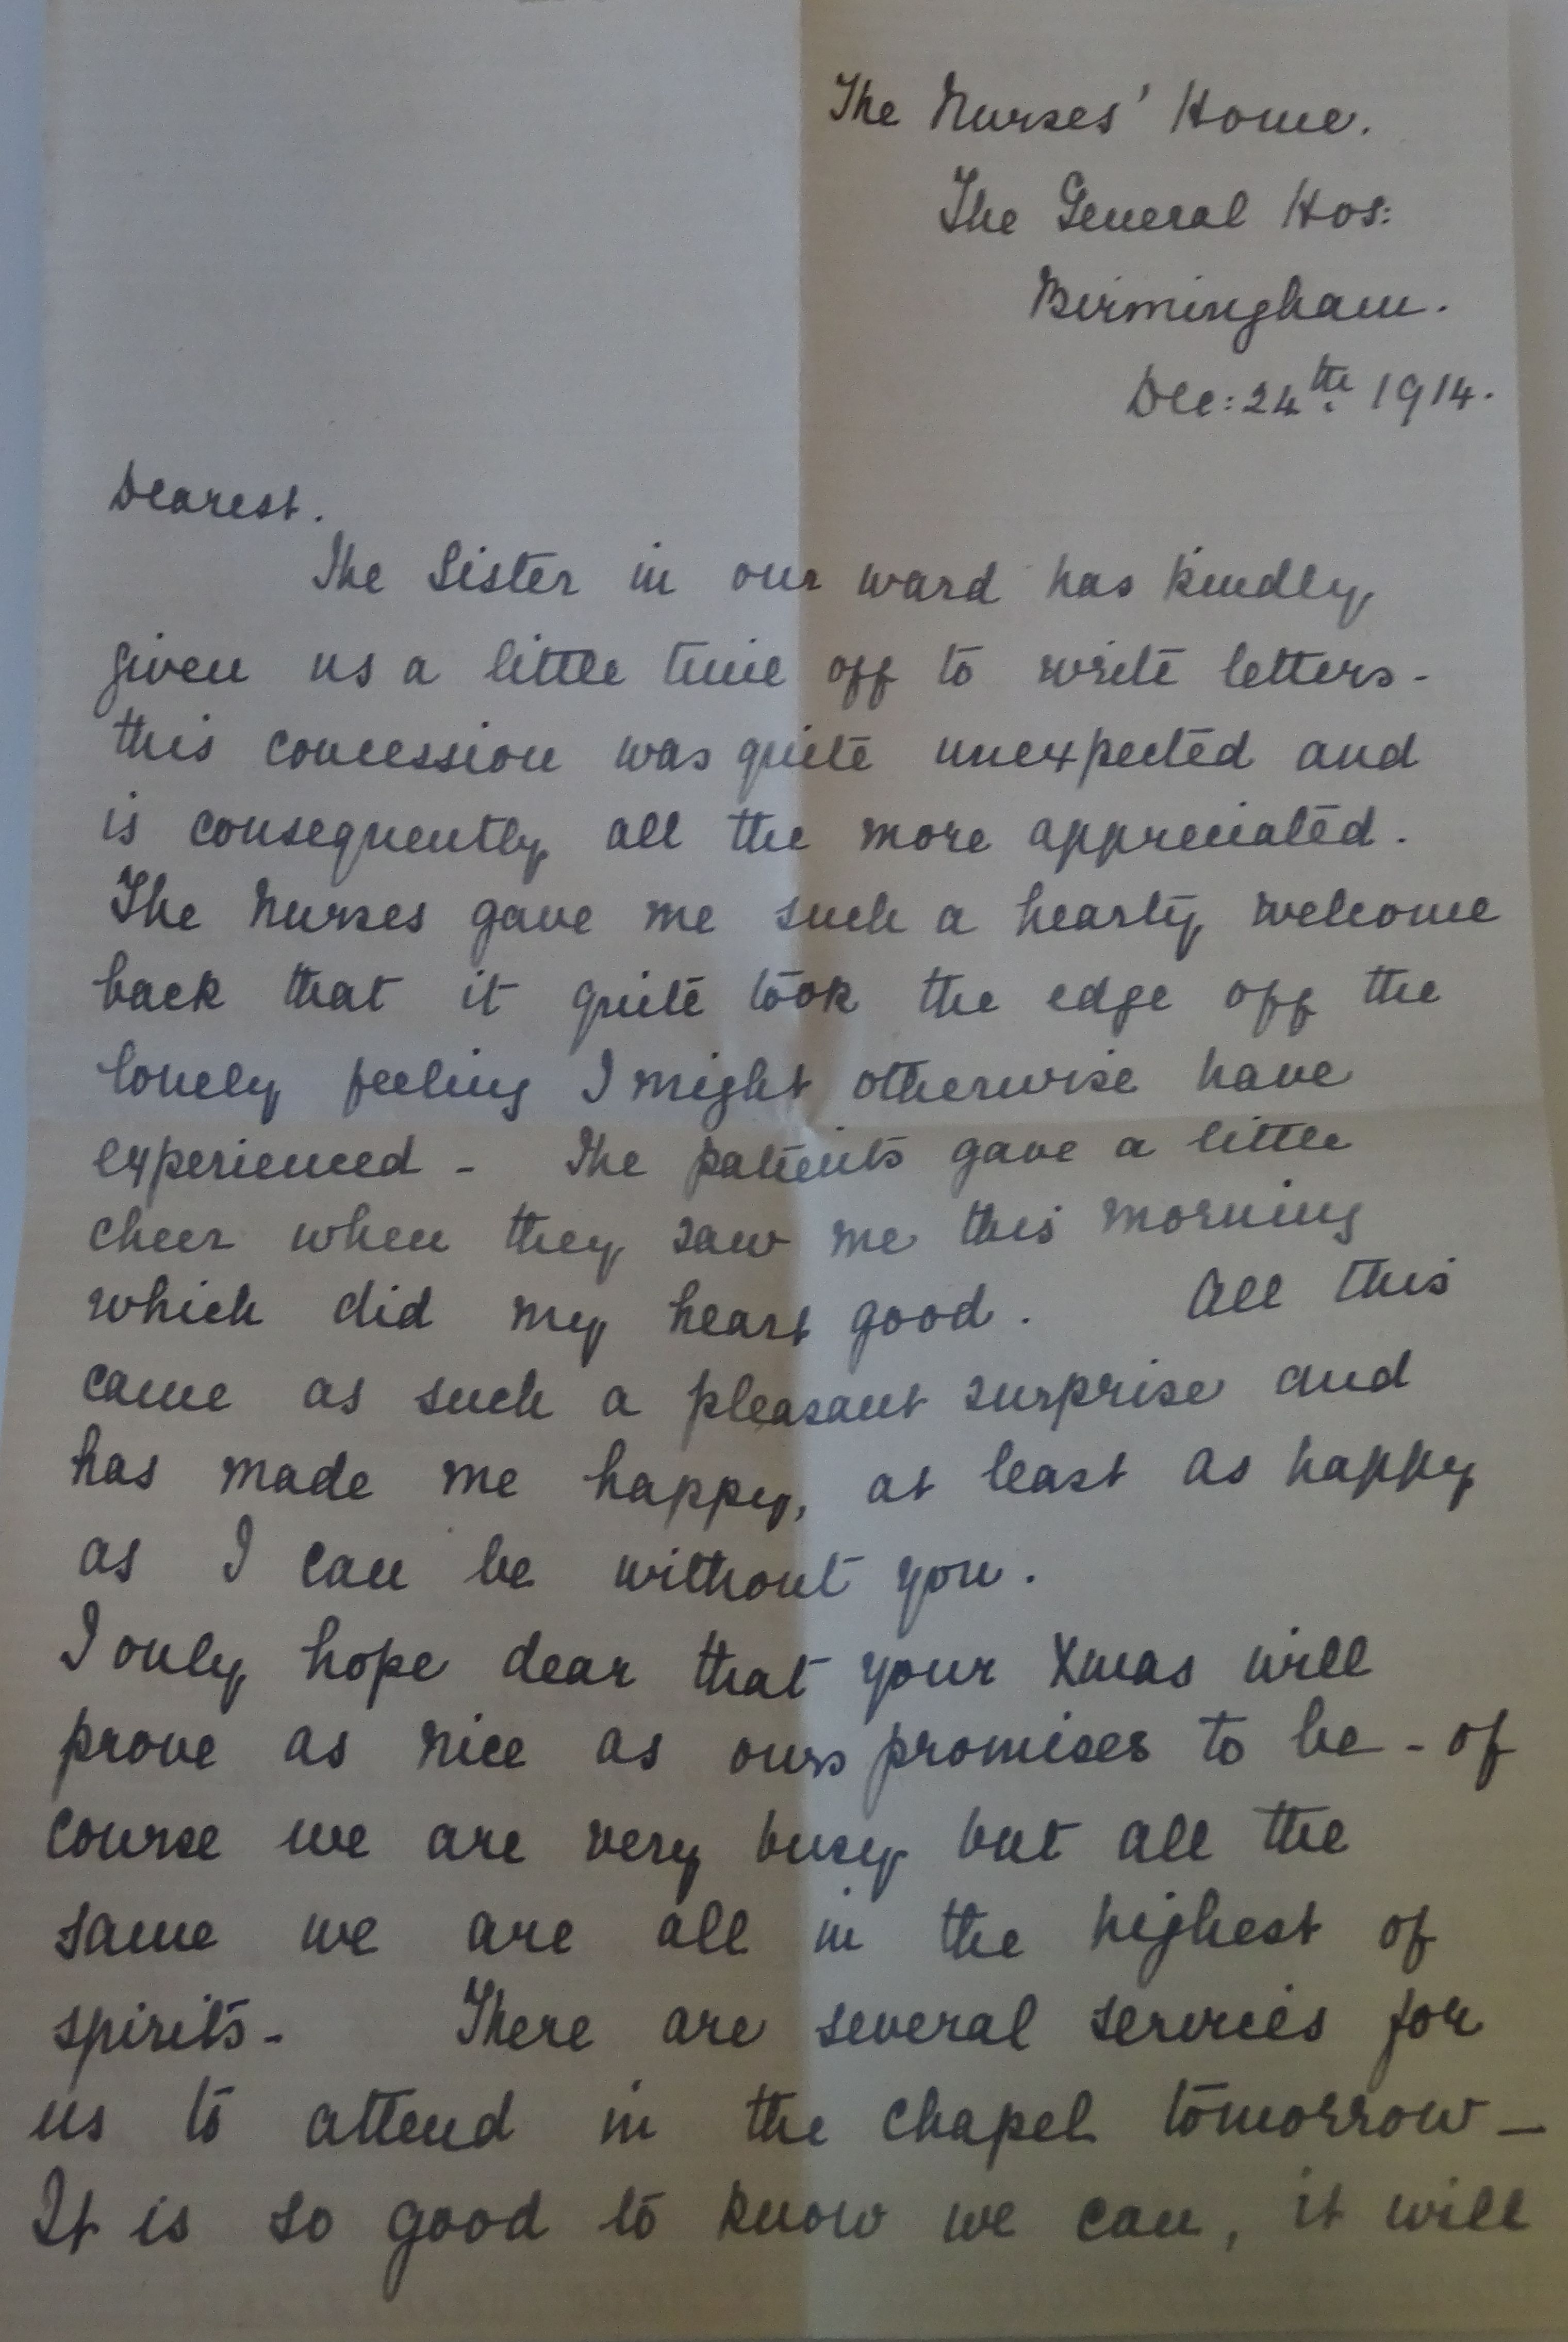 The Nurses' Home.
The General Hos:
Birmingham.
Dec: 24th. 1914.
Dearest.
The Sister in our ward has kindly
given us a little time off to write letters -
this concession was quite unexpected and
is consequently all the more appreciated.
The Nurses gave me such a hearty welcome
back that it quite took the edge off the
lonely feeling I might otherwise have
experienced - The patients gave a little
cheer when they saw me this morning
which did my heart good. All this
came as such a pleasant surprise and
has made me happy, at least as happy
as I can be without you.
I only hope dear that your Xmas will
prove as nice as ours promises to be - of
course we are very busy but all the
same we are all in the highest of
spirits - There are several services for
us to attend in the chapel tomorrow -
It is so good to know we can, it will